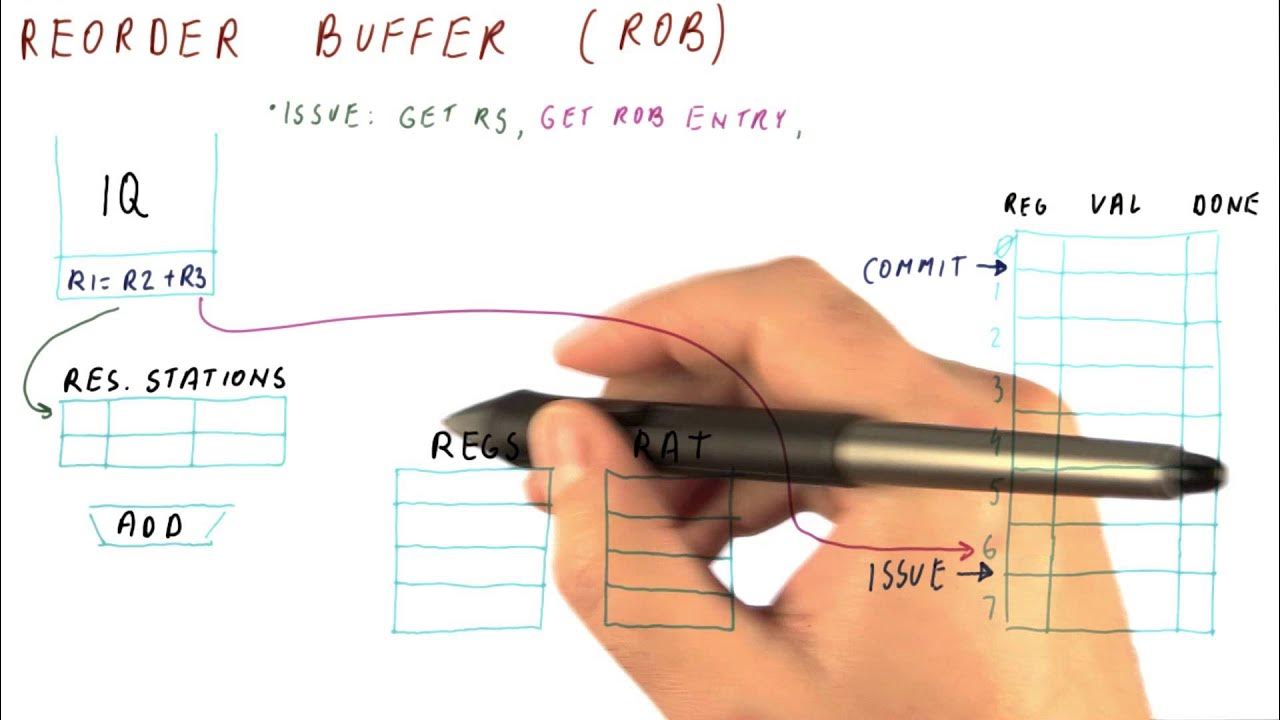 REORDER BUFFER (ROB)
•ISSUE: GET RS, GET ROB ENTRY,
IQ
R1= R2 +R3
RES. STATIONS
ADD
REGS
RAT
REG VAL DONE
COMMIT →
ISSUE →
0
1
2
3
4
5
6
7